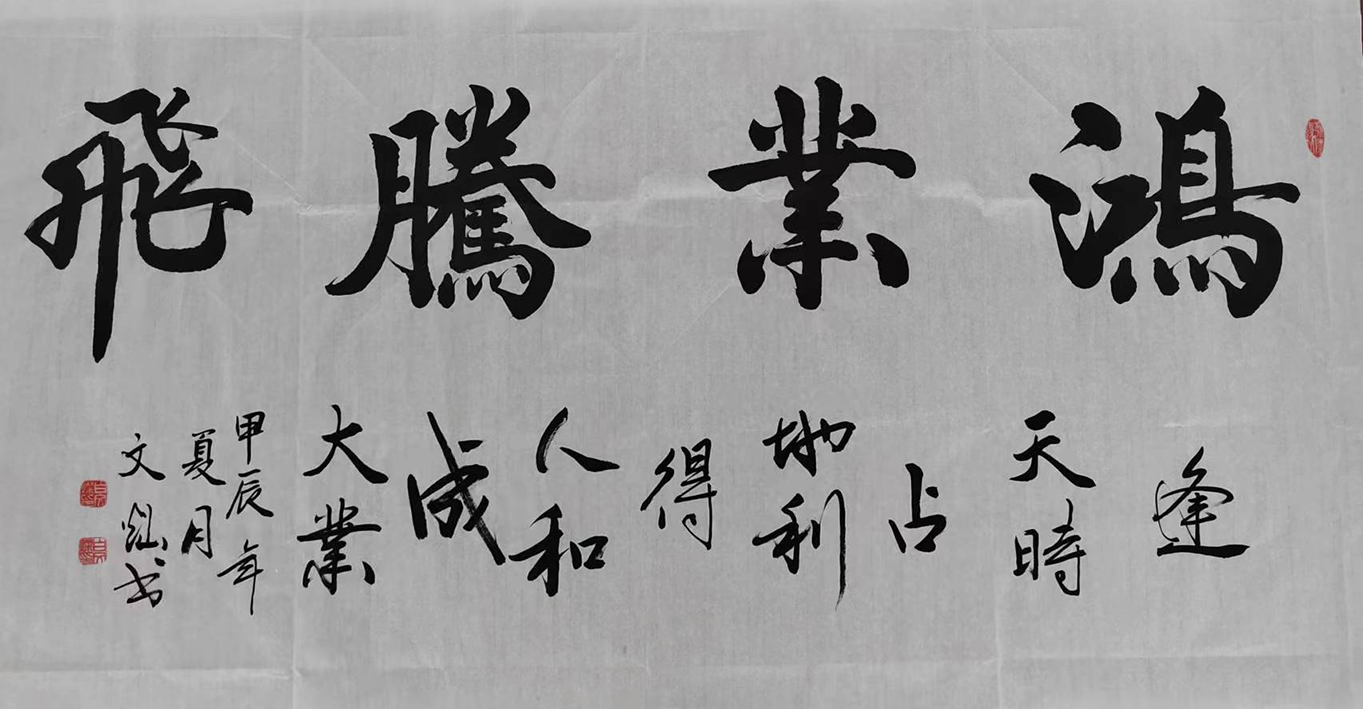 鴻業騰飛
逢天時占地利得人和成大業
甲辰年
夏月
文燦书